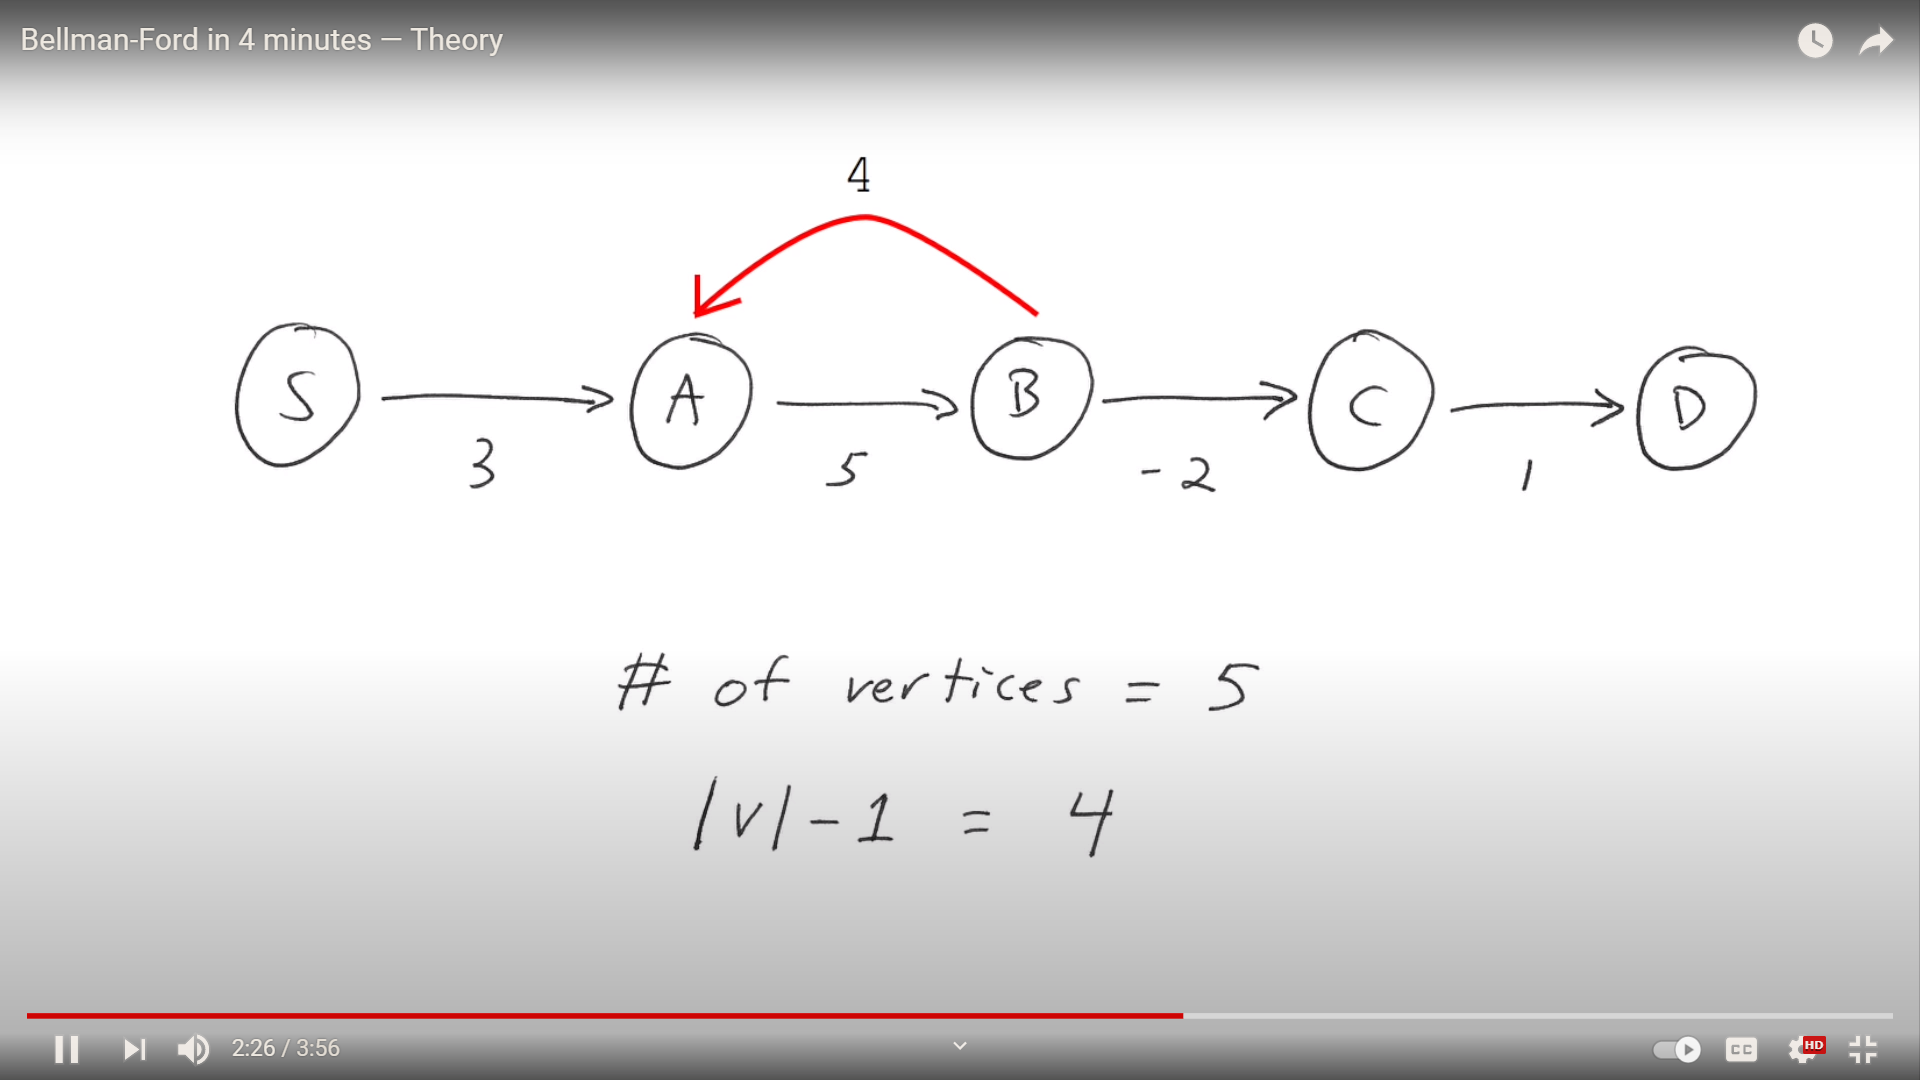 Bellman-Ford in 4 minutes — Theory
4
S A B C D
3 5 -2 1
# of vertices = 5
|v| - 1 = 4
2:26 / 3:56
CC HD